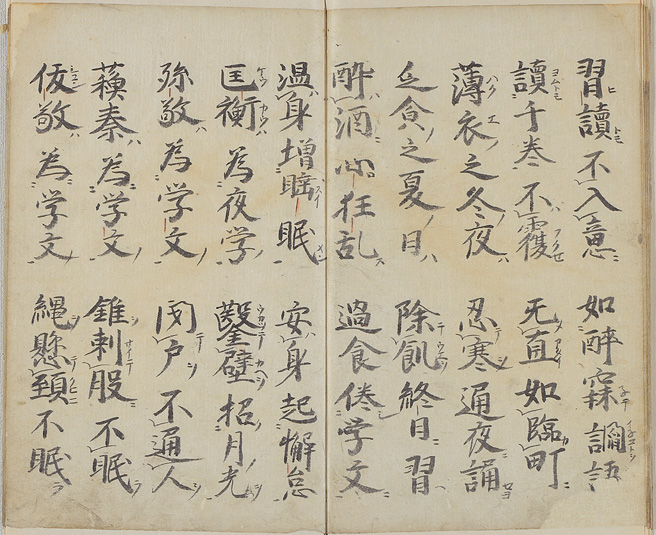 習讀不入意 如醉寐讇語
讀千巻不覆 无直如臨町
薄衣之冬夜 忍寒通夜誦
乏食之夏日 除飢終日習
酔酒心狂乱 過食倦学文
温身増睡眠 安身起懈怠
匡衡為夜学 鑿壁招月光
孫敬為学文 閇戸不通人
蘓秦為学文 錐刺股不眠
俊敬為学文 縄懸頸不眠